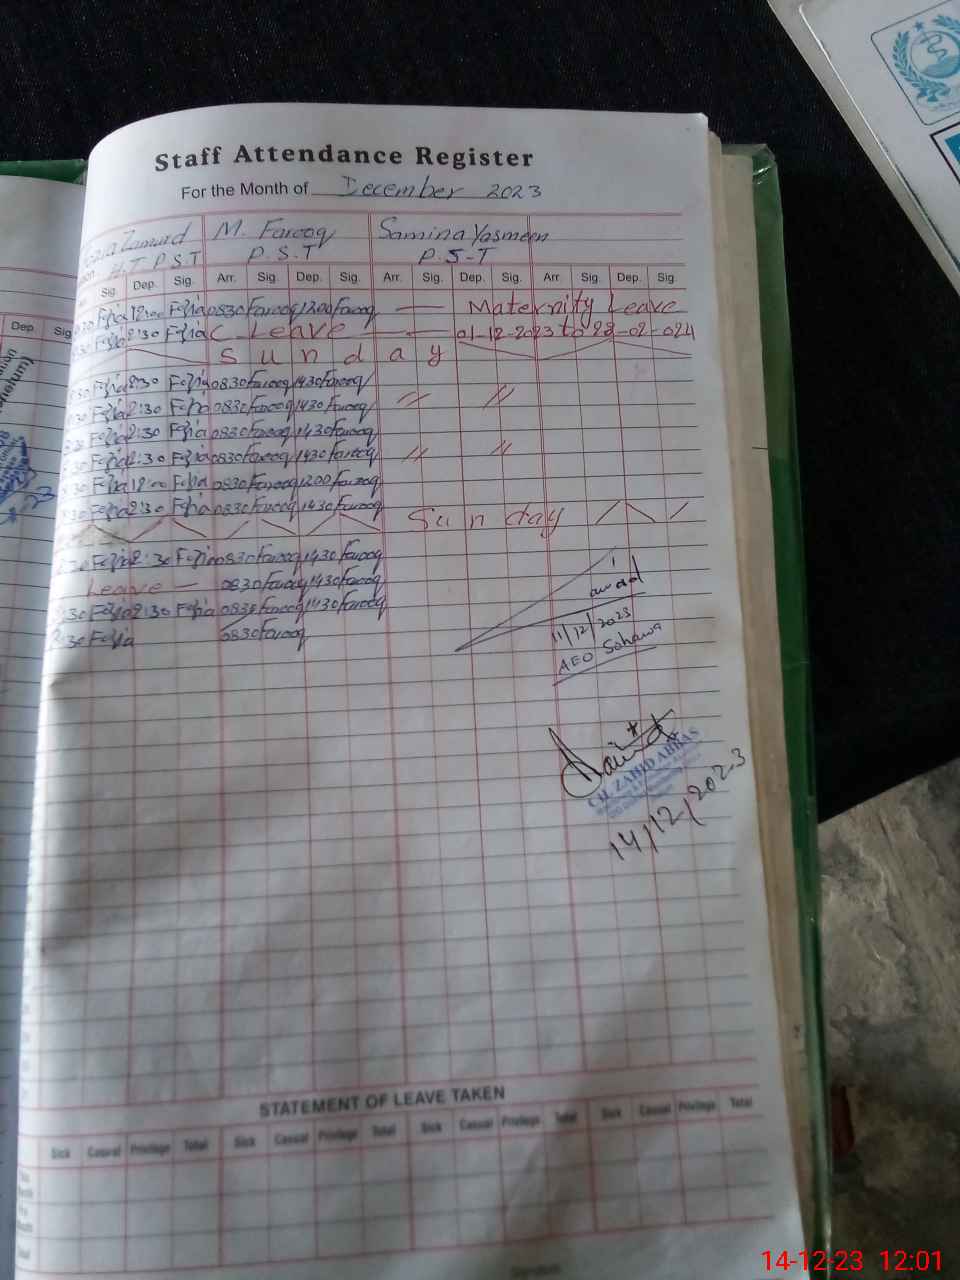 Staff Attendance Register
For the Month of December 2023
Zamurd M. Farooq Samina Yasmeen
P.S.T P.S.T P.S-T
Sig. Dep. Sig. Arr. Sig. Dep. Sig. Arr. Sig. Dep. Sig. Arr. Sig. Dep. Sig.
Fozia 12:00 Fozia 0830 Farooq 1200 Farooq — Maternity Leave
Fozia 2:30 Fozia C Leave — 01-12-2023 to 28-02-024
Sunday
Fozia 2:30 Fozia 0830 Farooq 1430 Farooq
Fozia 2:30 Fozia 0830 Farooq 1430 Farooq // //
Fozia 2:30 Fozia 0830 Farooq 1430 Farooq
Fozia 2:30 Fozia 0830 Farooq 1430 Farooq // //
Fozia 12:00 Fozia 0830 Farooq 1200 Farooq
Fozia 2:30 Fozia 0830 Farooq 1430 Farooq
Sunday
Fozia 2:30 Fozia 0830 Farooq 1430 Farooq
Leave — 0830 Farooq 1430 Farooq
Fozia 2:30 Fozia 0830 Farooq 1430 Farooq
Fozia 0830 Farooq
11/12/2023
AEO Sohawa
CH. ZAHID ABBAS
14/12/2023
STATEMENT OF LEAVE TAKEN
Sick Casual Privilege Total Sick Casual Privilege Total Sick Casual Privilege Total Sick Casual Privilege Total
Total
Dep. Sig
14-12-23 12:01